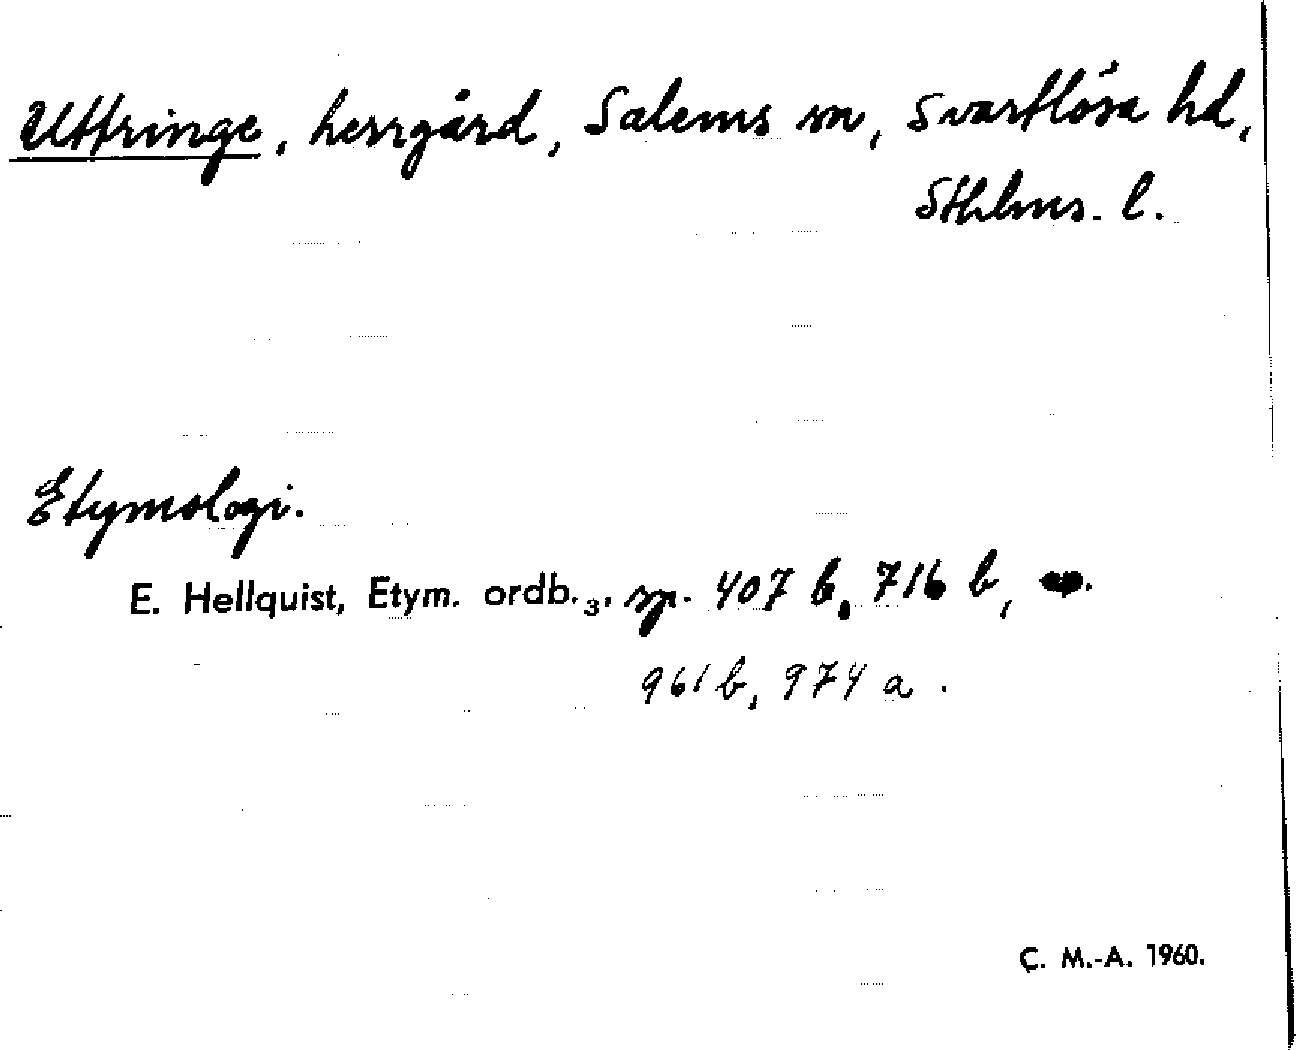 Uttringe, herrgård, Salems sn, Svartlösa hd,
Sthlms. l.
Etymologi.
E. Hellquist, Etym. ordb.3, sp. 407 b, 716 b,
961 b, 974 a.
C. M.-A. 1960.